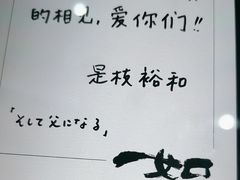 的相见,爱你们!!
是枝裕和
「そして父になる」